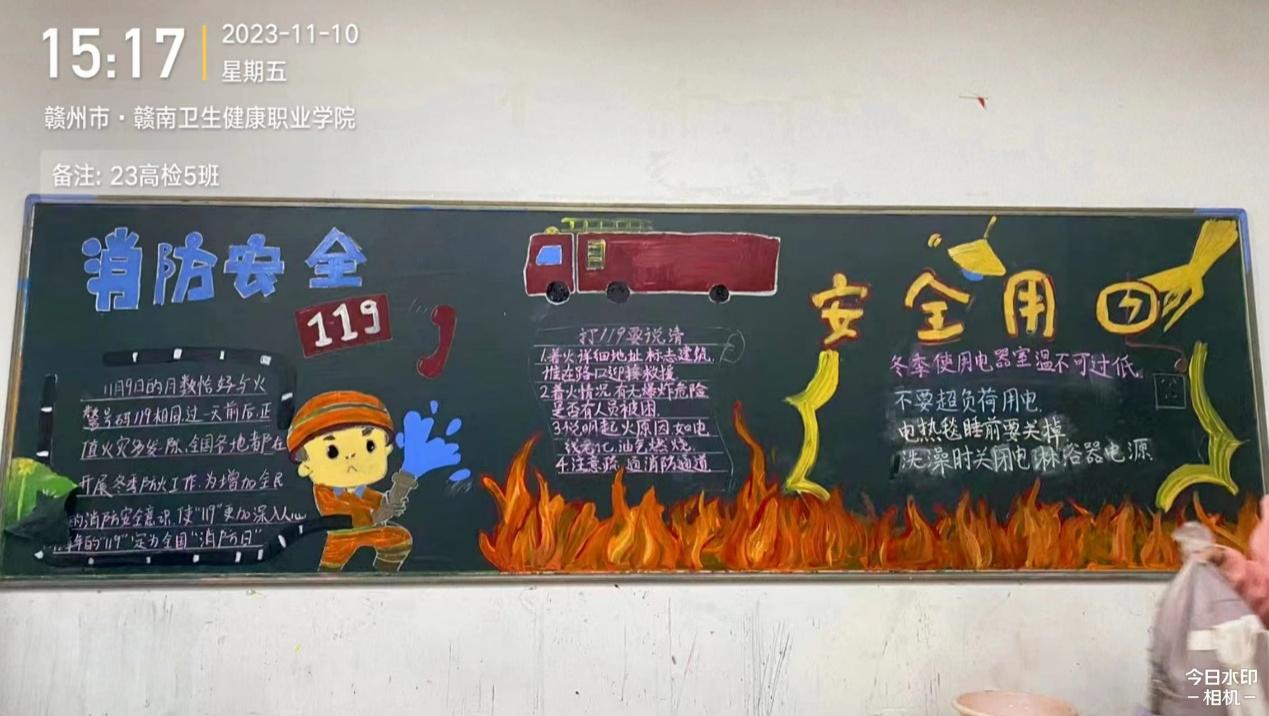 15:17
2023-11-10
星期五
赣州市·赣南卫生健康职业学院
备注: 23高检5班
消防安全
119
11月9日的月数恰好与火
警号码119相同.过一天前后.正
值火灾多发 全国各地都在
开展冬季防火工作.为增加全民
的消防安全意识.使"119"更加深入人心
的"119"定为全国"消防日"
打119要说清
1.着火详细地址 标志建筑.
推在路口迎接救援
2.着火情况 有无爆炸危险
是否有人员被困.
3.说明起火原因 如电
线 油气燃烧.
4.注意疏 道消防通道
安全用
冬季使用电器室温不可过低.
不要超负荷用电.
电热毯睡前要关掉
洗澡时关闭电淋浴器电源
今日水印
-相机-